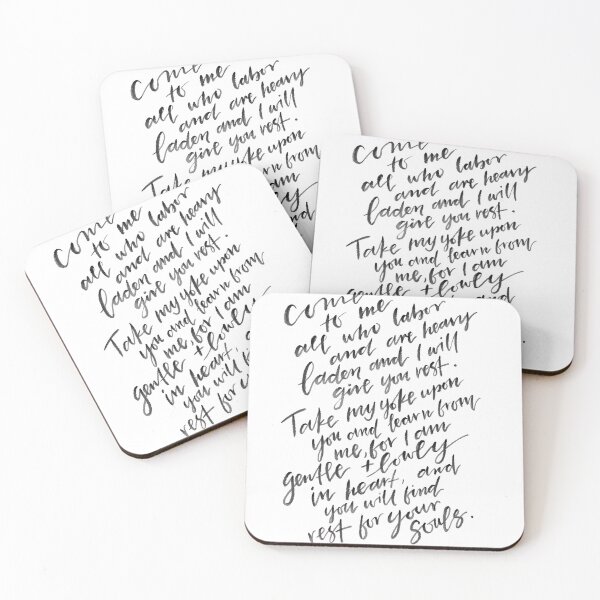 come
to me
all who labor
and are heavy
laden and I will
give you rest.
Take my yoke upon
learn from
I am
come
to me
all who labor
and are heavy
laden and I will
give you rest.
Take my yoke upon
you and learn from
me, for I am
gentle + lowly
and
come
to me
all who labor
and are heavy
laden and I will
give you rest.
Take my yoke upon
you and learn from
me, for I am
gentle + lowly
in heart,
you will
rest for
come
to me
all who labor
and are heavy
laden and I will
give you rest.
Take my yoke upon
you and learn from
me, for I am
gentle + lowly
in heart, and
you will find
rest for your
souls.